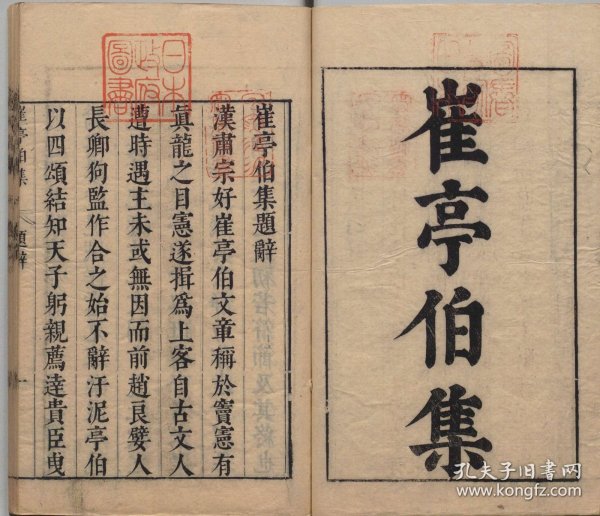 崔亭伯集
崔亭伯集題辭
漢肅宗好崔亭伯文章稱於竇憲有
真龍之目憲遂揖爲上客自古文人
遭時遇主未或無因而前趙良嬖人
長卿狗監作合之始不辭汙泥亭伯
以四頌結知天子躬親薦達貴臣曳
崔亭伯集 題辭 一
日本
政府
圖書
孔夫子旧书网
www.kongfz.com